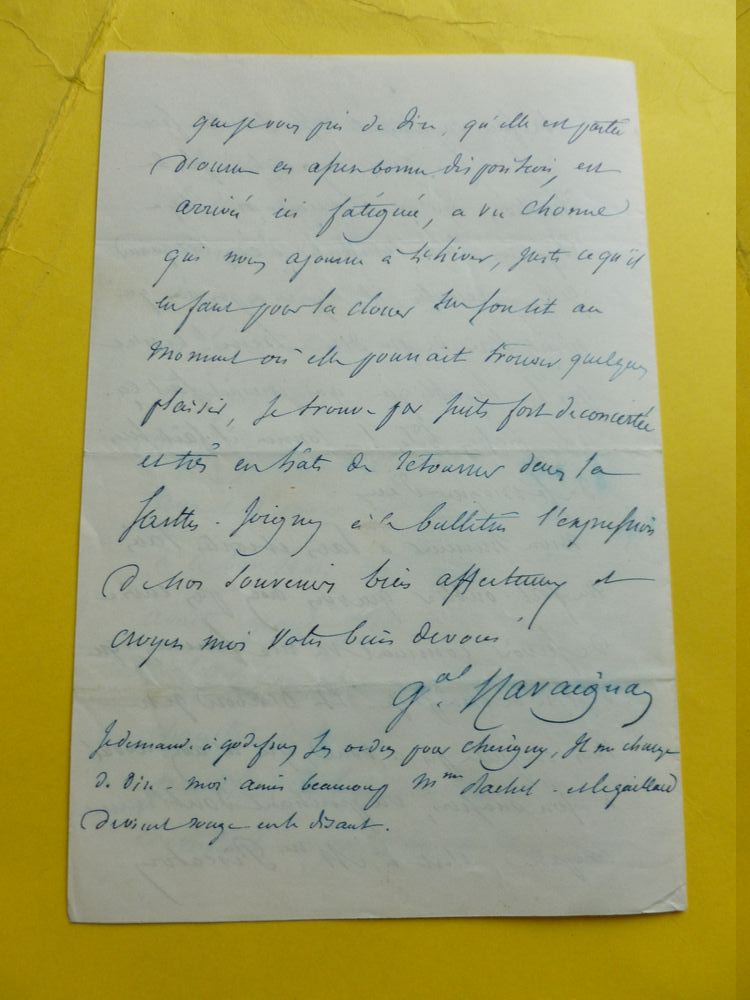 que je vous prie de dire, qu'elle est partie
d'ourne en assez bonne disposition, est
arrivée ici fatiguée, a vu chomel
qui nous ajourne à l'hiver, juste ce qu'il
en faut pour la clouer sur son lit au
moment où elle pourrait trouver quelque
plaisir, se trouve par suite fort déconcertée
et très en hâte de retourner dans la
Sarthe. Joignez à ce bulletin l'expression
de nos souvenirs bien affectueux et
croyez moi votre bien dévoué
Gal. Cavaignac
Je demande à godefroy ses ordres pour cherigny, Il me charge
de dire - moi aimer beaucoup Mme Rachel - et le gaillard
devient rouge en le disant.